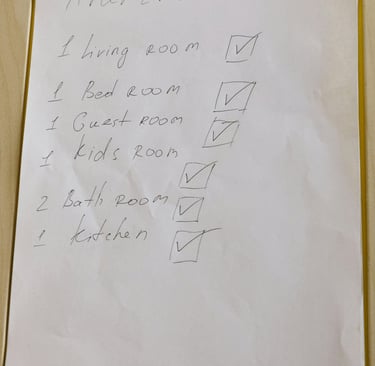 1 Living Room ☑
1 Bed Room ☑
1 Guest Room ☑
1 Kids Room ☑
2 Bath Room ☑
1 Kitchen ☑